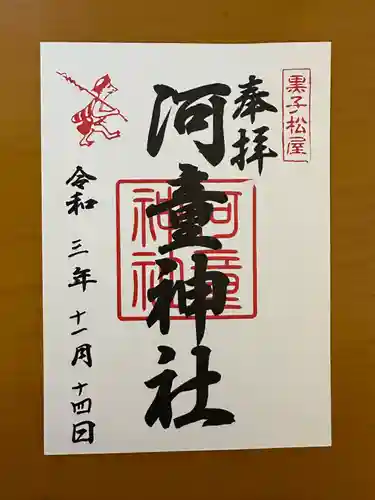 黒子松屋
奉拝
河童神社
河童神社
令和三年十一月十四日